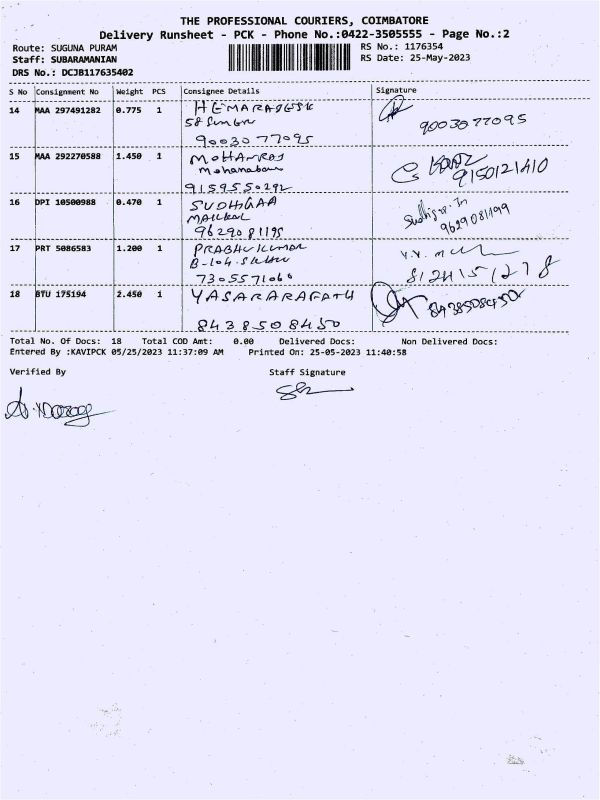 THE PROFESSIONAL COURIERS, COIMBATORE
Delivery Runsheet - PCK - Phone No.:0422-3505555 - Page No.:2
Route: SUGUNA PURAM
RS No.: 1176354
Staff: SUBARAMANIAN
RS Date: 25-May-2023
DRS No.: DCJB117635402
S No Consignment No Weight PCS Consignee Details Signature
14 MAA 297491282 0.775 1
58
9003077095 9003077095
15 MAA 292270588 1.450 1 MOHANROJ
9159550292 9150121410
16 DPI 10500988 0.470 1 SUDHIGAA
9629081195 9629081199
17 PRT 5086583 1.200 1 PRABHUKUMAR
B-104
7305571060
18 BTU 175194 2.450 1 YASARARAFATH
8438508450 8438508450
Total No. Of Docs: 18 Total COD Amt: 0.00 Delivered Docs: Non Delivered Docs:
Entered By :KAVIPCK 05/25/2023 11:37:09 AM Printed On: 25-05-2023 11:40:58
Verified By Staff Signature